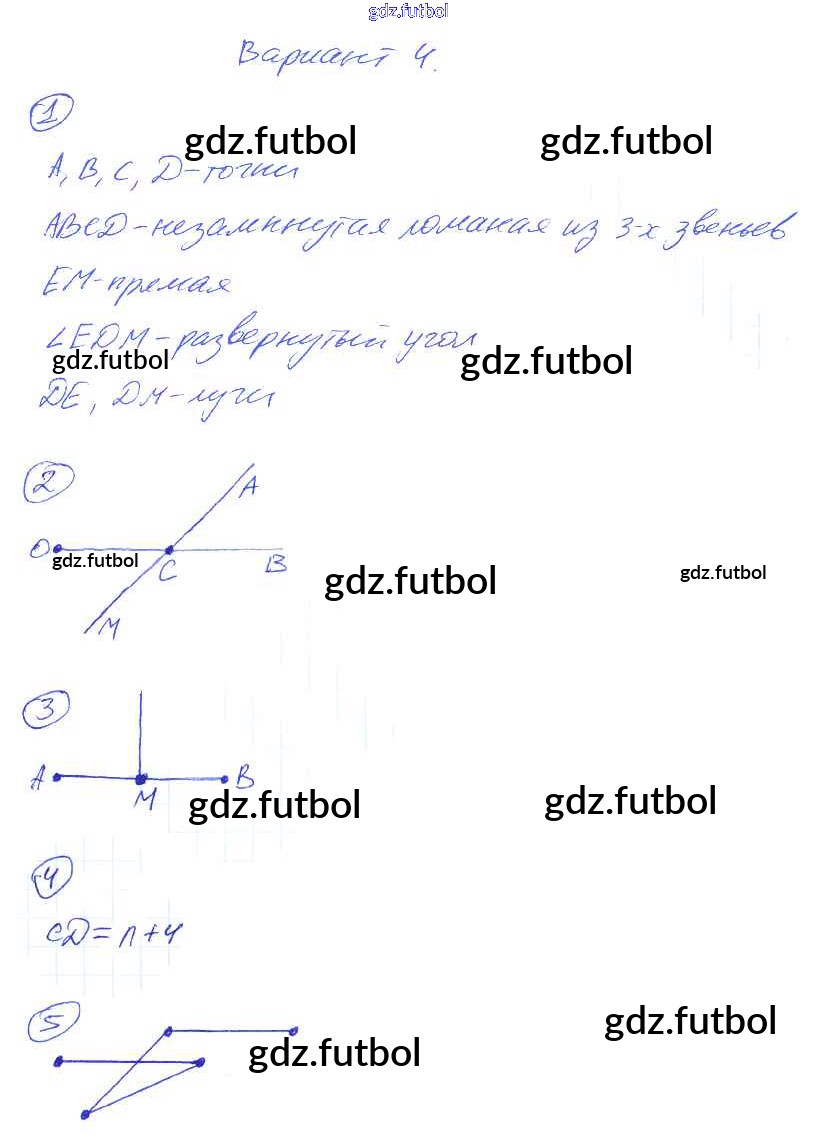 gdz.futbol
Вариант 4.
1
gdz.futbol gdz.futbol
A, B, C, D-точки
ABCD-незамкнутая ломаная из 3-х звеньев
EM-прямая
∠EDM-развернутый угол
gdz.futbol gdz.futbol
DE, DM-лучи
2
A
O C B
gdz.futbol gdz.futbol gdz.futbol
M
3
A M B
gdz.futbol gdz.futbol
4
CD=n+4
5
gdz.futbol gdz.futbol